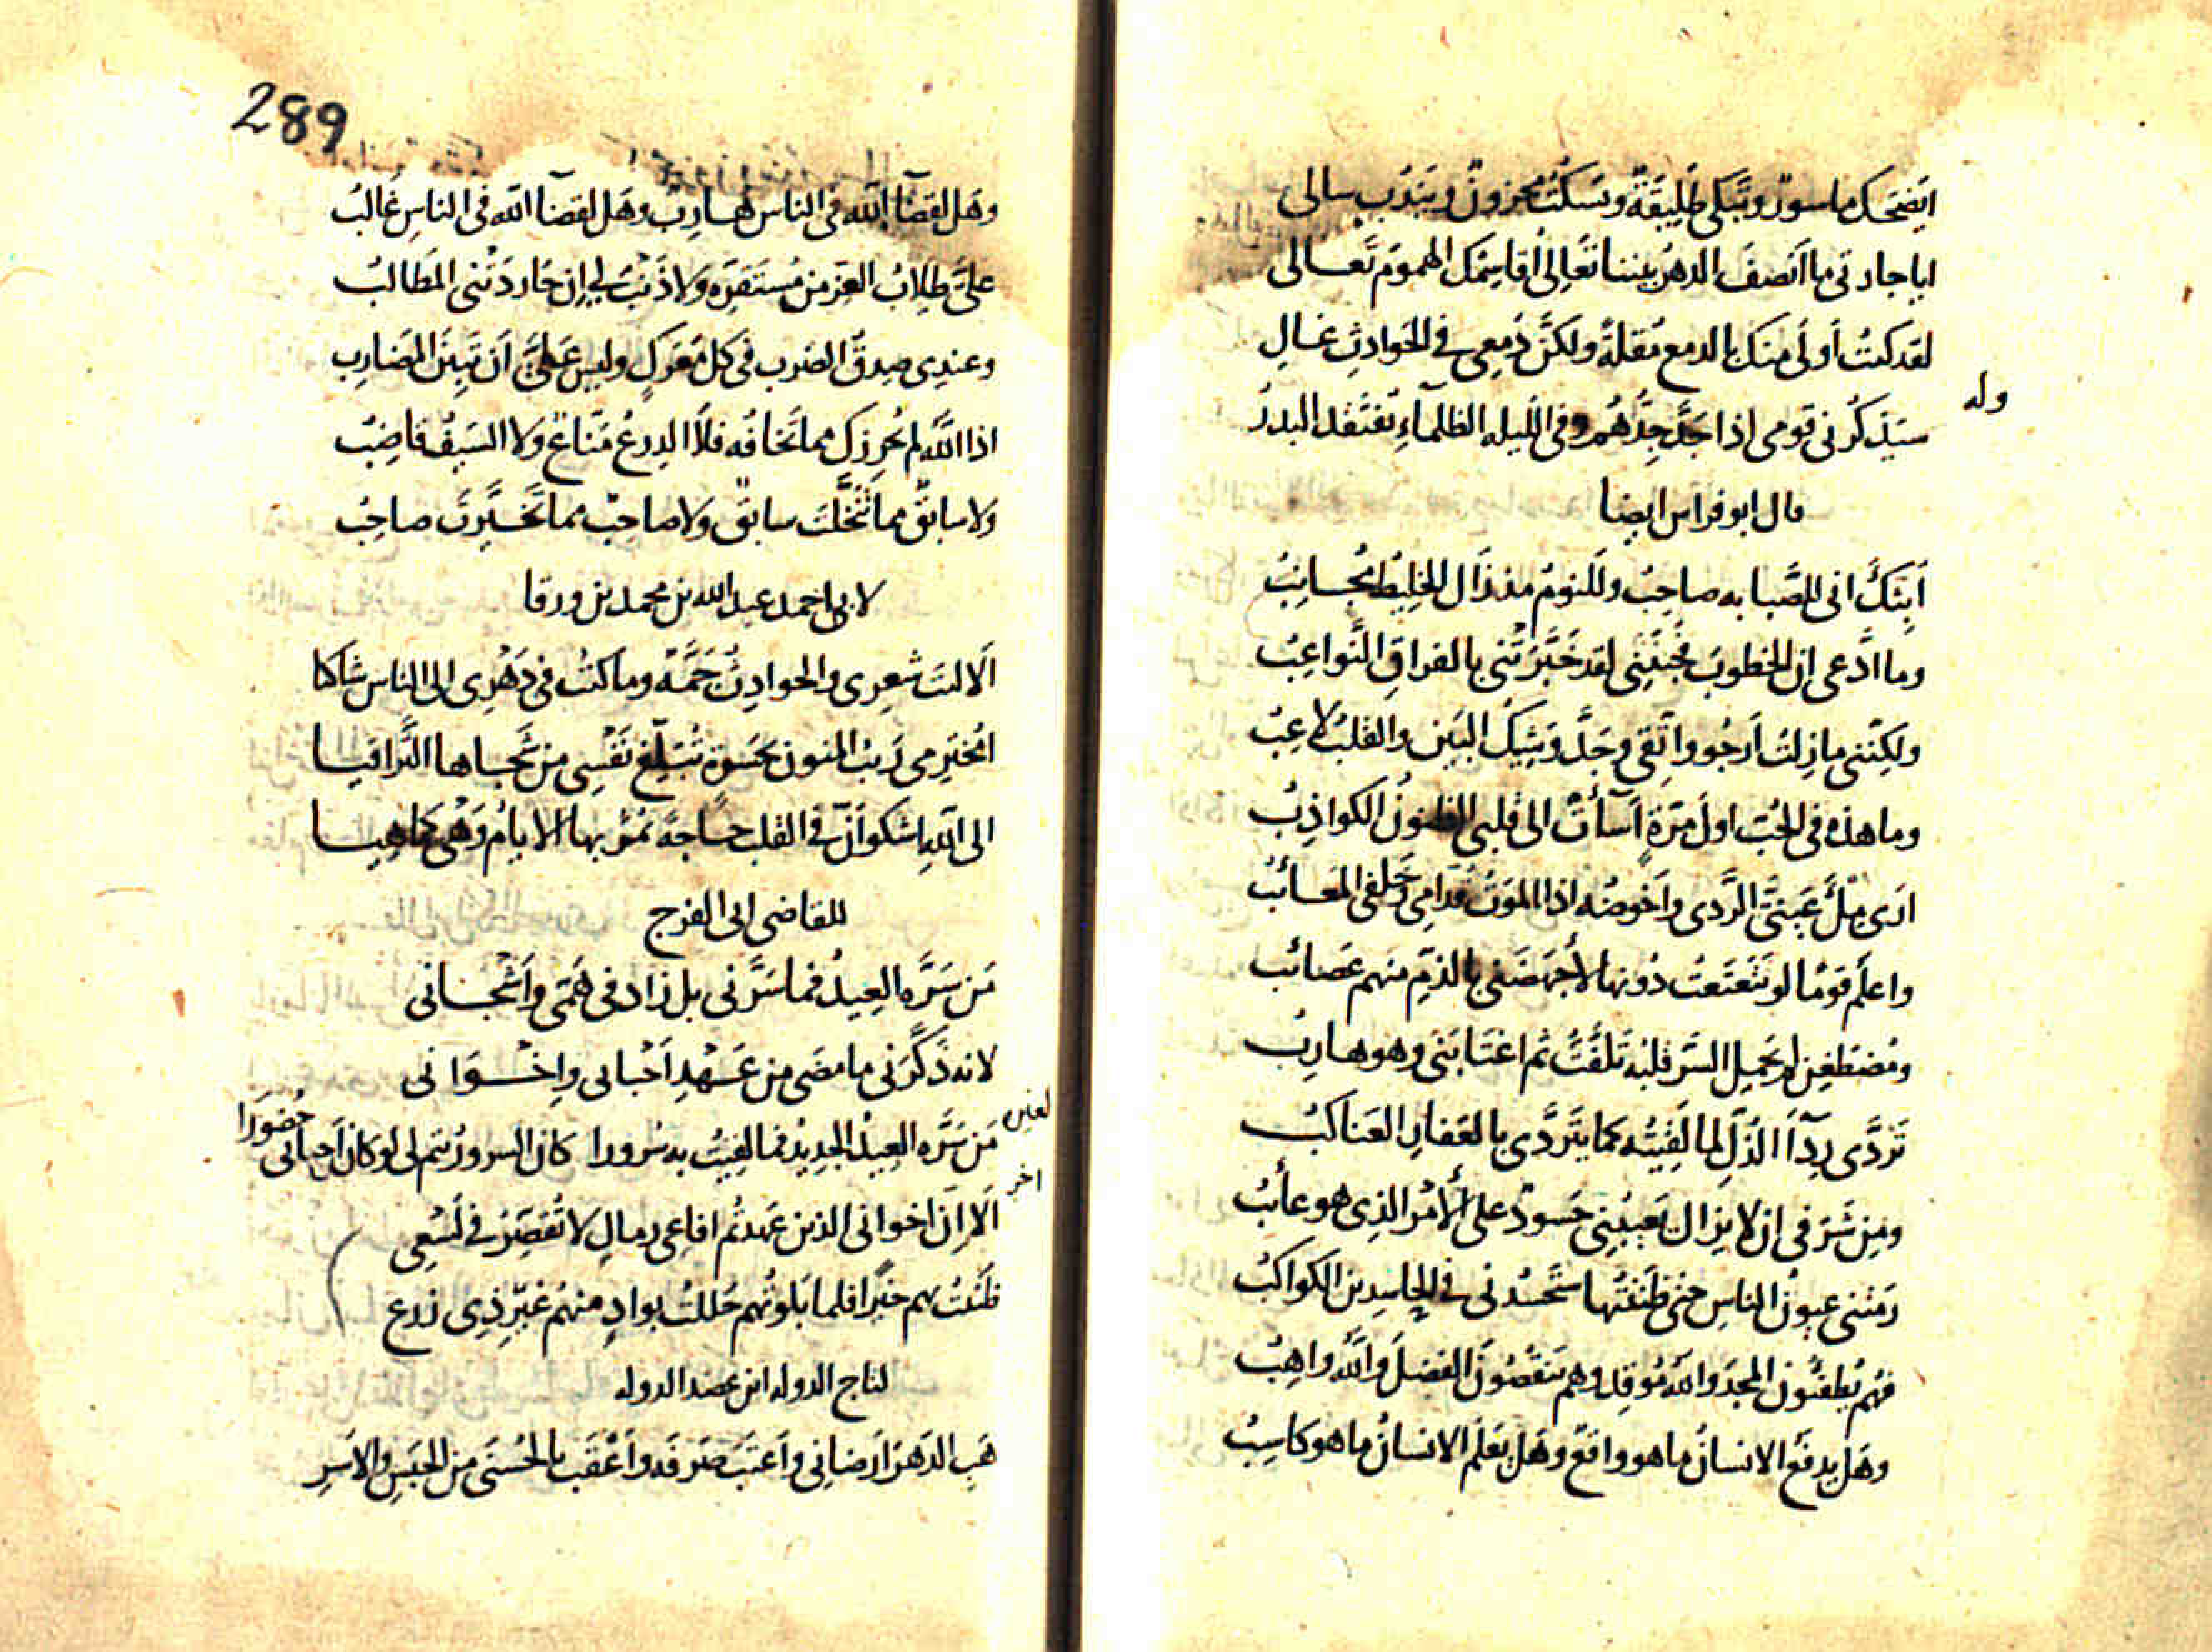 ايضحك ماسورٌ وتبكى طليقةٌ ويسكتُ محزونٌ ويندُب سالى
ايا جارتى ما انصفَ الدهرُ بيننا تعالِى أقاسِمْكِ الهمومَ تعالى
لقد كنتُ أولَى منكِ بالدمع مُقلةً ولكنَّ دَمعى فى الحوادثِ غالِ
وله
سيَذكرُنى قومى اذا جَدَّ جِدُّهُم وفى الليله الظلمآءِ يُفتَقَد البدرُ
قال ابو فراس ايضا
أبثُّكَ انى للصَّبابه صاحِبُ وللنوم مذ زال الخليطُ مُجانِبُ
وما ادَّعى إن الخطوبَ فجئننى لقد خَبَّرتنى بالفراقِ النَّواعِبُ
ولكننى مازلتُ أرجُو واتّقى وجدَّ وَشيكُ البَين والقلبُ لاعِبُ
وما هذه فى الحُبّ اول مَرّةٍ أسآءت الى قلبى الظنونُ الكواذِبُ
ارى مِلْءَ عَينىَّ الرَّدى وأخوضُه اذا الموتُ قدّامى وخلفى المعائبُ
واعلم قومًا لو تَتَعتَعتُ دُونها لأجهَضَنى بالذمّ منهم عَصائب
ومضطغِنٍ لم يحمِل السّر قلبُه تلفَّتَ ثم اغتابَنى وهو هاربُ
تَردَّى رِدآءَ الذّلِ لما لَقيتُه كما يتَردَّى بالغبار العَناكبُ
ومِن شَرَفى ان لا يزال يَعيبُنِى حَسودٌ على الأمر الذى هو عائبُ
رَمتنى عيونُ الناسِ حتى ظَنَنتُها ستَحسُدُنى فى الحاسِدين الكواكبُ
فهُم يُطفئون المجدَ والله مُوقِد وهم يَنقُصُونَ الفضلَ والله واهِبُ
وهَل يدفَعُ الانسانُ ما هو واقعٌ وهل يَعلَم الانسانُ ما هو كاسِبُ
289
وهَل لقضآءِ الله فى الناس هاربٌ وهَل لقضآءِ الله فى الناسِ غالبُ
علىَّ طِلابُ العَز من مُستَقرّه ولا ذَنبَ لى إن حاردَتنى المَطالبُ
وعندِى صِدقُ الضرب فى كل مَعركٍ وليس عَلىَّ أن تبينَ المَضاربِ
اذا الله لم يُحرِزك مما تَخافُه فلا الدِرعُ مَنّاعٌ ولا السَيفُ قاضِبُ
ولا سابقٌ مما تَنَخَّلتَ سابقٌ ولا صاحبٌ مما تَخَيَّرتَ صاحِبُ
لابى احمد عبد الله بن محمد بن ورقا
ألا ليتَ شعرى والحوادِثُ جَمّةٌ وما كنتُ فى دَهرِى الى الناس شاكا
امُختَرِمى رَيبُ المنون بحَسرة تُبَلّغ نَفْسِى من شجاها التَّراقيا
الى الله اشكو أنَّ فى القلب حاجةً تَمُرّ بها الايامُ وَهْىَ كماهيا
للقاضى ابى الفرج
مَن سَرَّه العِيدُ فما سَرَّنى بل زاد فى هَمّى وأشْجانى
لانه ذَكَّرَنى ما مضى من عَهدِ أحْبابى وإخْوانى
لغيره
مَن سَرَّه العِيدُ الجديدُ فما لقِيتُ به سُرورا كان السرورُ يَتم لى لو كان أحبابى حُضورا
اخر
ألا إنّ اخوانى الذين عَهدتُم افاعى رمالٍ لا تُقصِّرُ فى لَسْعِى
ظَنَنتُ بهم خيرًا فلما بَلَوتُهم حَللتُ بوادٍ منهُم غَيرِ ذِى زرع
لتاج الدوله ابن عضد الدوله
هَبِ الدَهرَ أرضانى وأعتَبَ صَرفَه وأعْقَب بالحُسنَى من الحَبْسِ والأسرِ